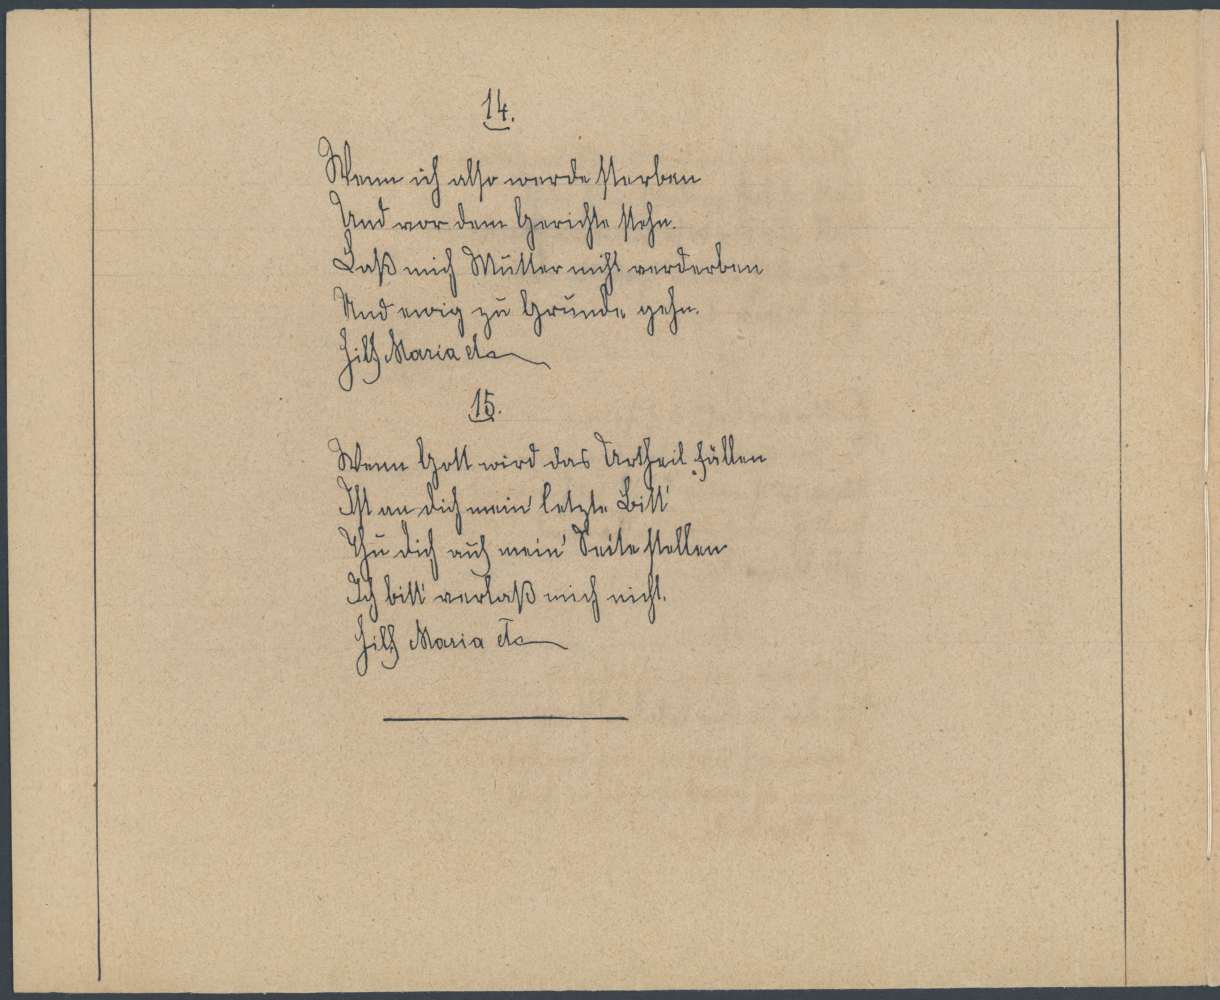 14.
Wenn ich also werde sterben
Und vor dem Gerichte stehn.
Laß mich Mutter nicht verderben
Und ewig zu Grunde gehn.
Hilf Maria etc
15.
Wenn Gott wird das Urtheil fällen
Ist an dich mein letzte Bitt'
Thu dich auf mein' Seite stellen
Ich bitt' verlaß mich nicht.
Hilf Maria etc